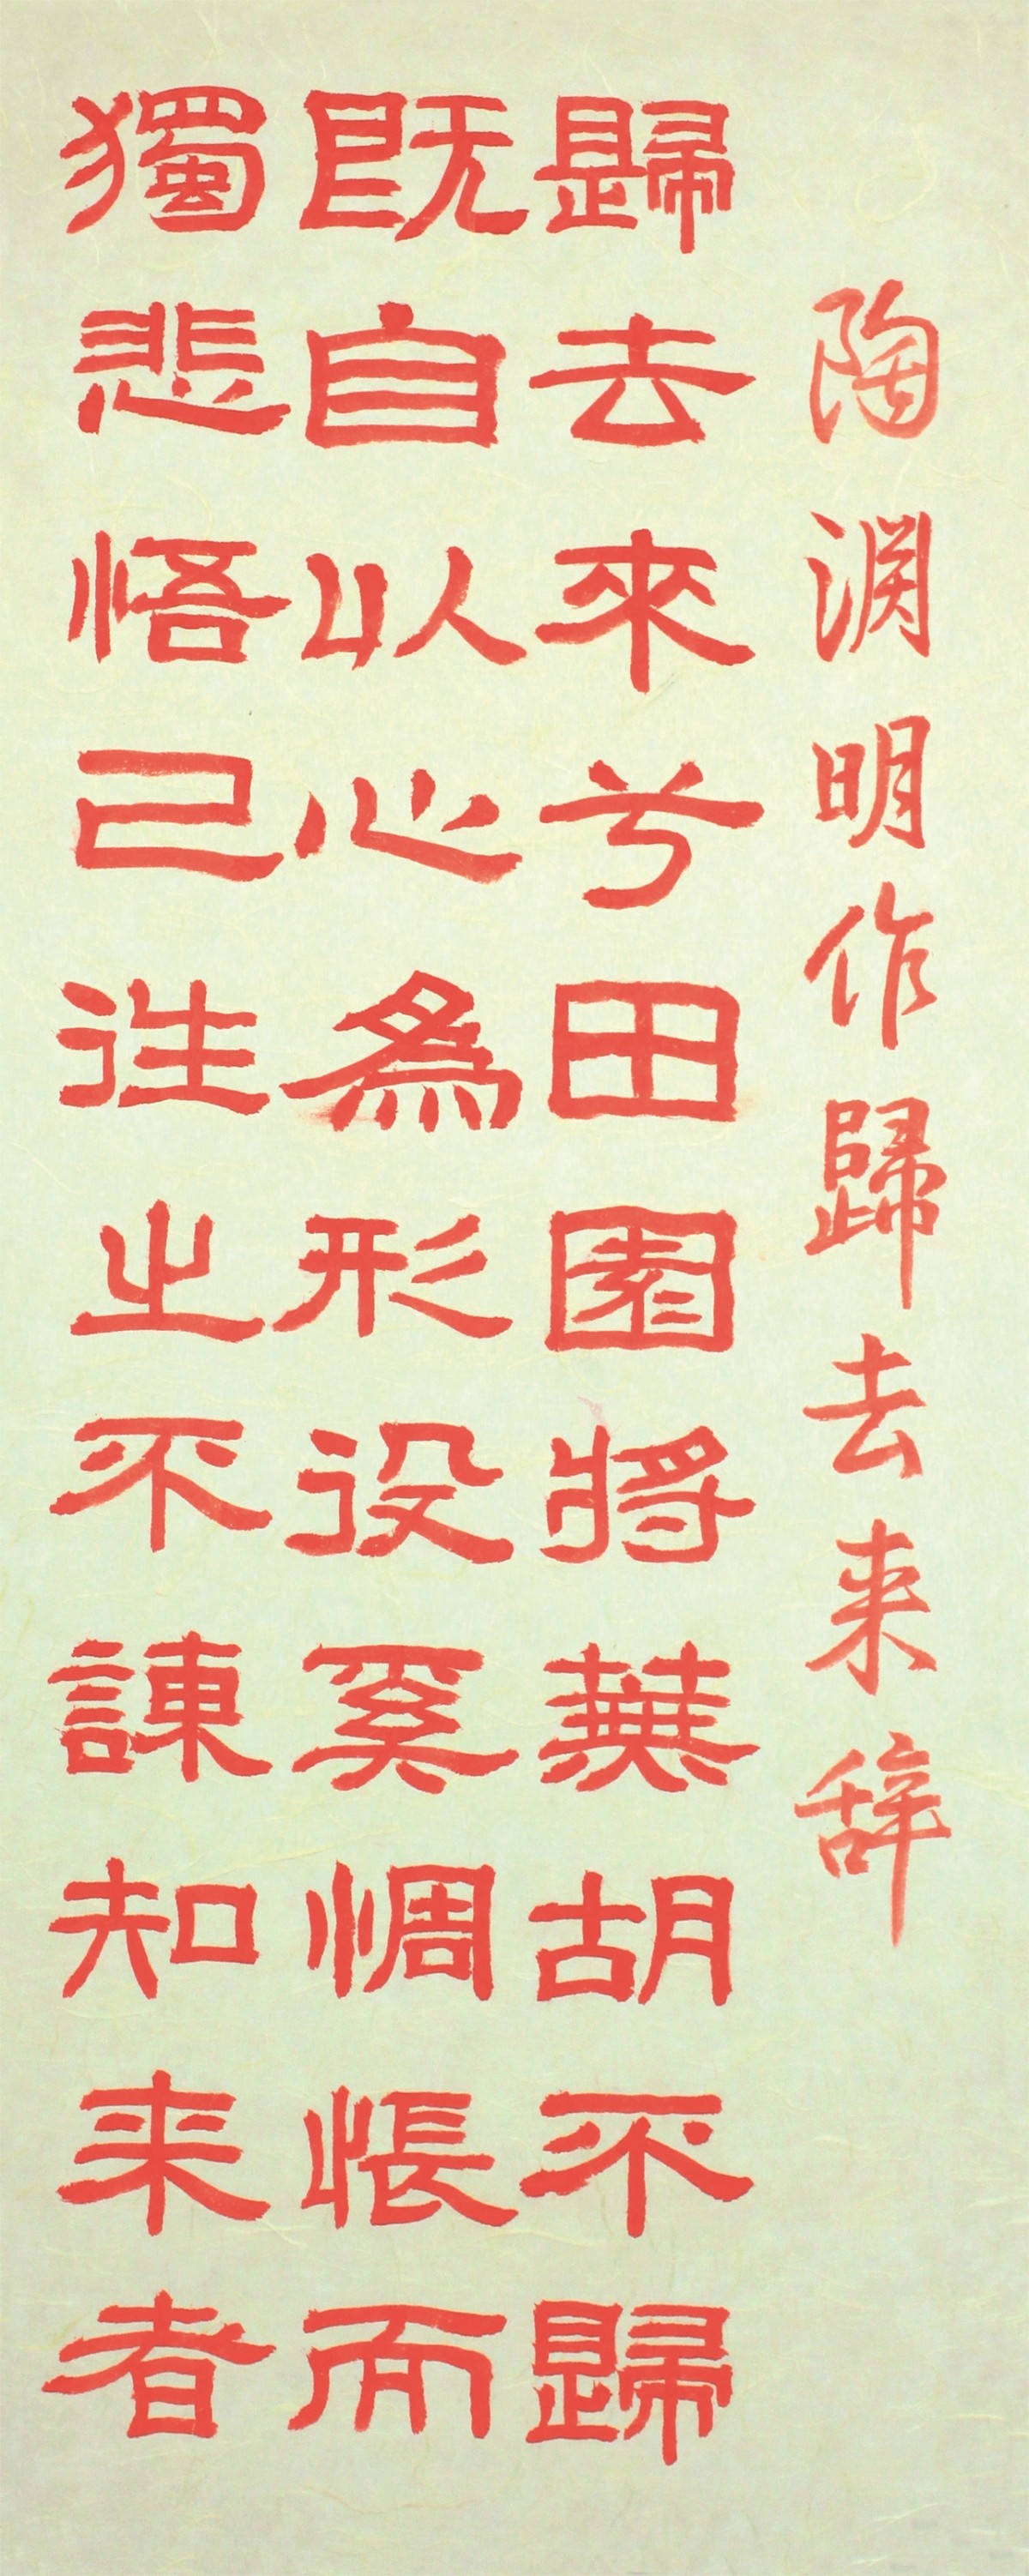 陶淵明作歸去来辞
歸去來兮田園將蕪胡不歸
既自以心為形役奚惆悵而
獨悲悟已往之不諫知来者